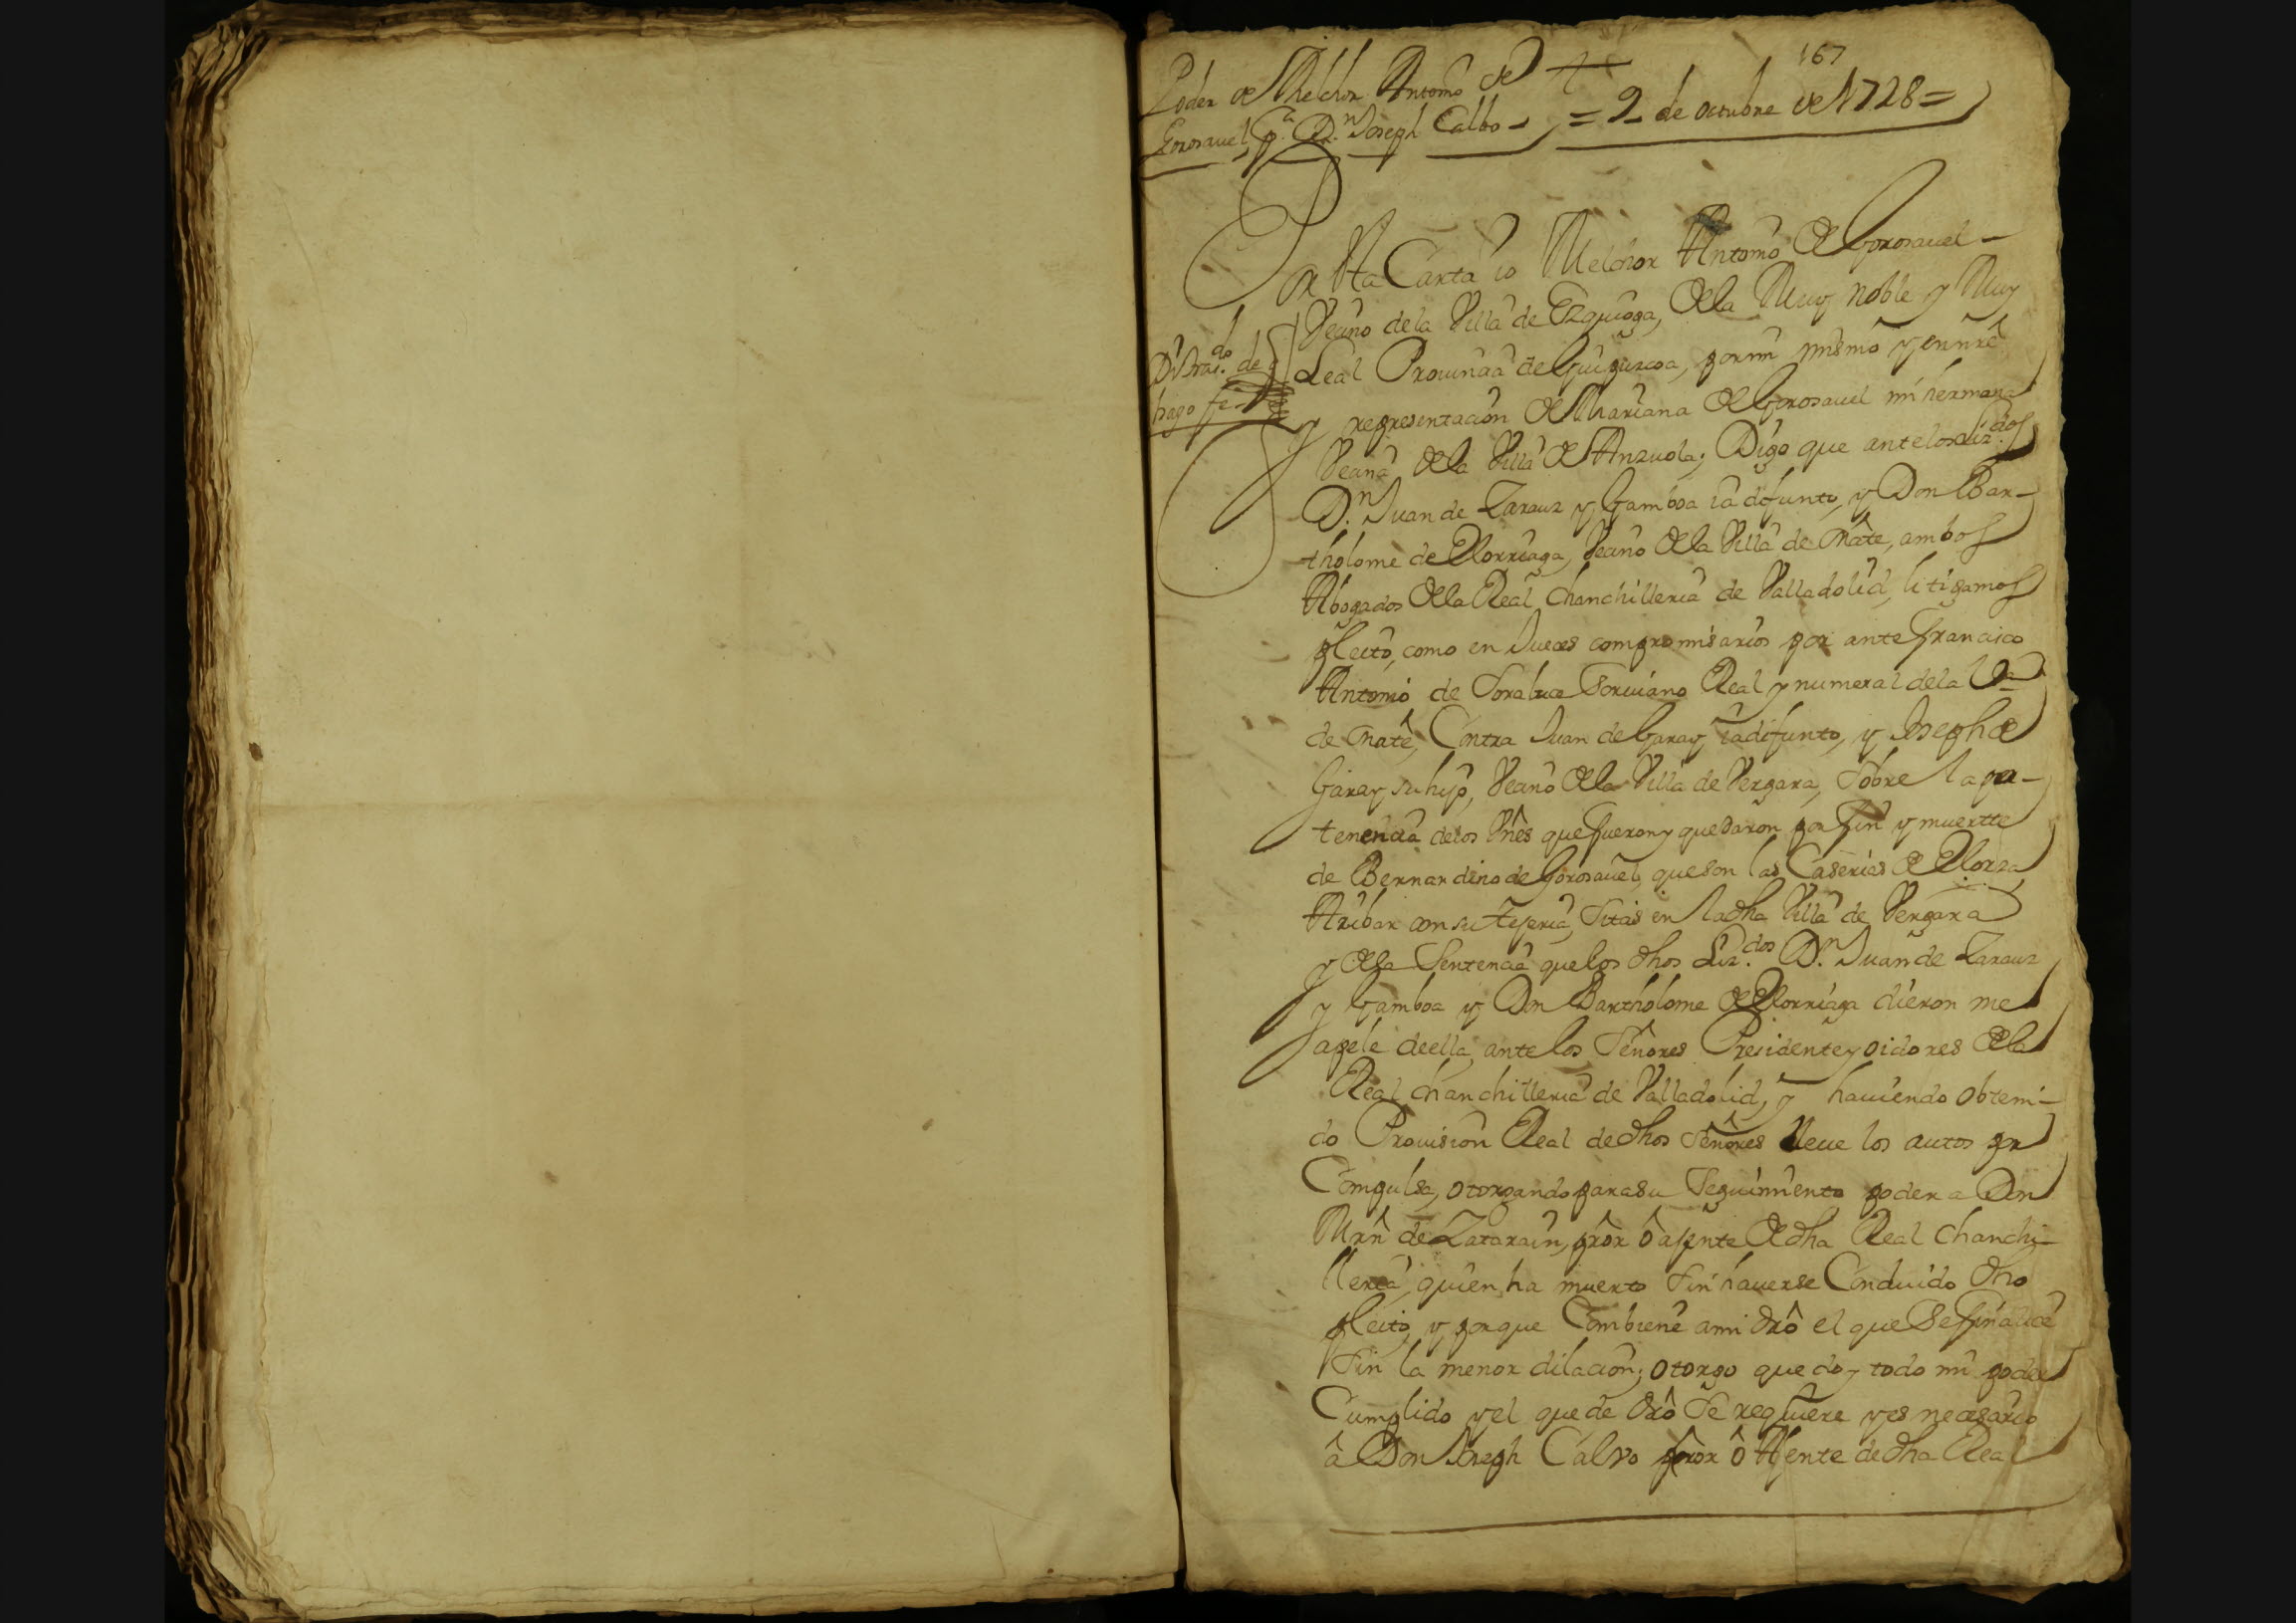 167
Poder de Melchor Antonio de
Gorosauel, pª. Dn. Joseph Calbo = 2 de octubre de 1728 =
Por Esta Carta io Melchor Antonio de Gorosauel
Veçino de la Villa de Ezquioga, de la Muy Noble y Muy
Leal Prouinçia de Guipuzcoa, por mi mismo y en nre
Di tras.do de
hago fe
y representaçion de Mariana de Gorosauel mi hermana
Veçina de la Villa de Anzuola; Digo que ante los Liz.dos
Dn. Juan de Zarauz y Gamboa ia difunto, y Don Bar-
tholome de Elorriaga, Veçino de la Villa de Oñate, ambos
Abogados de la Real Chanchilleria de Valladolid, litigamos
pleito, como en Jueces compromisarios por ante Françisco
Antonio de Soraluce Escriuano Real y numeral de la Va
de Oñate, Contra Juan de Garay ia difunto, y Joseph de
Garay su hijo, Veçino de la Villa de Vergara, Sobre la per-
tenençia de los Vnes que fueron y quedaron por fin y muertte
de Bernardino de Gorosauel, que son las Caserias de Elorza
Aribar con su Tejeria, Sitas en la dha Villa de Vergara
y de la Sentençia que los dhos Liz.dos Dn. Juan de Zarauz
y Gamboa y Don Bartholome de Elorriaga dieron me
apele de ella ante los Señores Presidente y oidores de la
Real Chanchilleria de Valladolid, y hauiendo obteni-
do Prouision Real de dhos Señores lleue los autos por
Compulsa, otorgando para su Seguimiento poder a Don
Mrn de Zatarain, pror ô ajente de dha Real Chanchi-
lleria, quien ha muerto Sin hauerse Concluido dho
pleito, y porque Combiene a mi dro el que Se finalice
Sin la menor dilaçion; otorgo que doy todo mi poder
Cumplido y el que de dro Se requiere y es necesario
â Don Joseph Calvo pror ô Ajente de dha Real